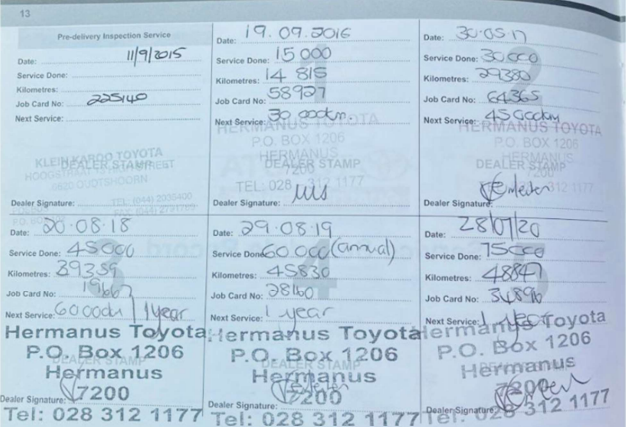 13
Pre-delivery Inspection Service
Date: 11/9/2015
Service Done:
Kilometres:
Job Card No: 225140
Next Service:
KLEIN KAROO TOYOTA
DEALER STAMP
TEL: (044)
Dealer Signature:
Date: 19.09.2016
Service Done: 15000
Kilometres: 14 815
Job Card No: 58927
Next Service: 30 000km
HERMANUS TOYOTA
P.O. BOX 1206
HERMANUS
DEALER STAMP
7200
TEL: 028 312 1177
Dealer Signature:
Date: 30.05.17
Service Done: 30000
Kilometres: 29380
Job Card No: 64365
Next Service: 45000km
HERMANUS TOYOTA
P.O. BOX 1206
DEALER STAMP
312 1177
Dealer Signature:
Date: 20.08.18
Service Done: 45000
Kilometres: 39359
Job Card No:
Next Service: 60000km 1 year
Hermanus Toyota
P.O. Box 1206
DEALER STAMP
Hermanus
7200
Dealer Signature:
Tel: 028 312 1177
Date: 29.08.19
Service Done: 60 000 (annual)
Kilometres: 45830
Job Card No: 28160
Next Service: 1 year
Hermanus Toyota
P.O. Box 1206
DEALER STAMP
Hermanus
7200
Dealer Signature:
Tel: 028 312 1177
Date: 28/07/20
Service Done: 75000
Kilometres: 48847
Job Card No: 34896
Next Service: 1 year
Hermanus Toyota
P.O. Box 1206
Hermanus
7200
Dealer Signature:
Tel: 028 312 1177